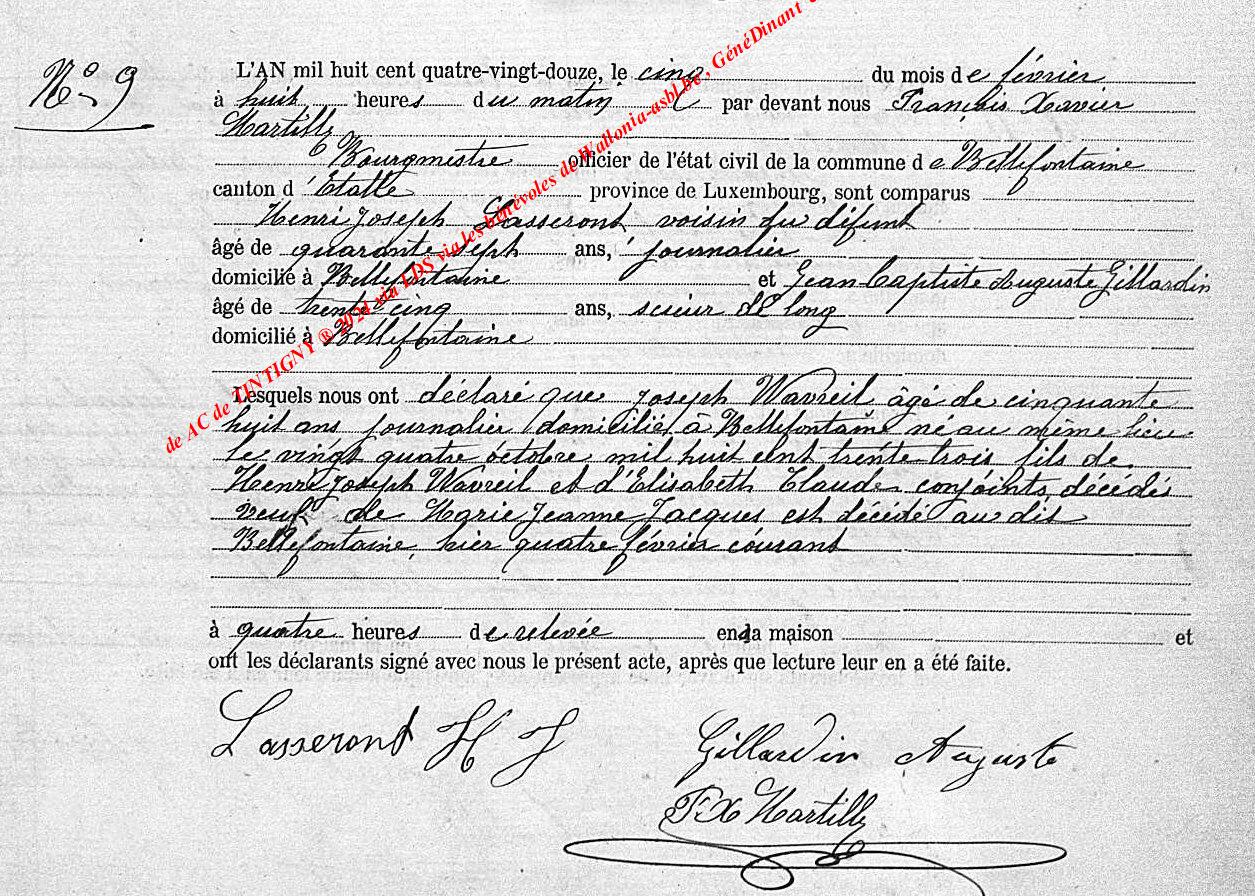 N° 9
L'AN mil huit cent quatre-vingt-douze, le cinq du mois de février
à huit heures du matin par devant nous François Xavier
Martilly
Bourgmestre officier de l'état civil de la commune de Bellefontaine
canton d'Etalle province de Luxembourg, sont comparus
Henri Joseph Lasseront voisin du défunt
âgé de quarante sept ans, journalier
domicilié à Bellefontaine et Jean baptiste Auguste Gillardin
âgé de trente cinq ans, scieur de long
domicilié à Bellefontaine
Lesquels nous ont déclaré que Joseph Wavreil âgé de cinquante
huit ans journalier domicilié à Bellefontaine né au même lieu
le vingt quatre octobre mil huit cent trente trois fils de
Henri Joseph Wavreil et d'Elisabeth Claude conjoints, décédés
veuf de Marie Jeanne Jacques est décédé au dit
Bellefontaine, hier quatre février courant
à quatre heures de relevée en la maison et
ont les déclarants signé avec nous le présent acte, après que lecture leur en a été faite.
Lasseront H J
Gillardin Auguste
F X Martilly
de AC de TINTIGNY ® 2021 via LDS via les bénévoles de Wallonia-asbl.be, GénéDinant